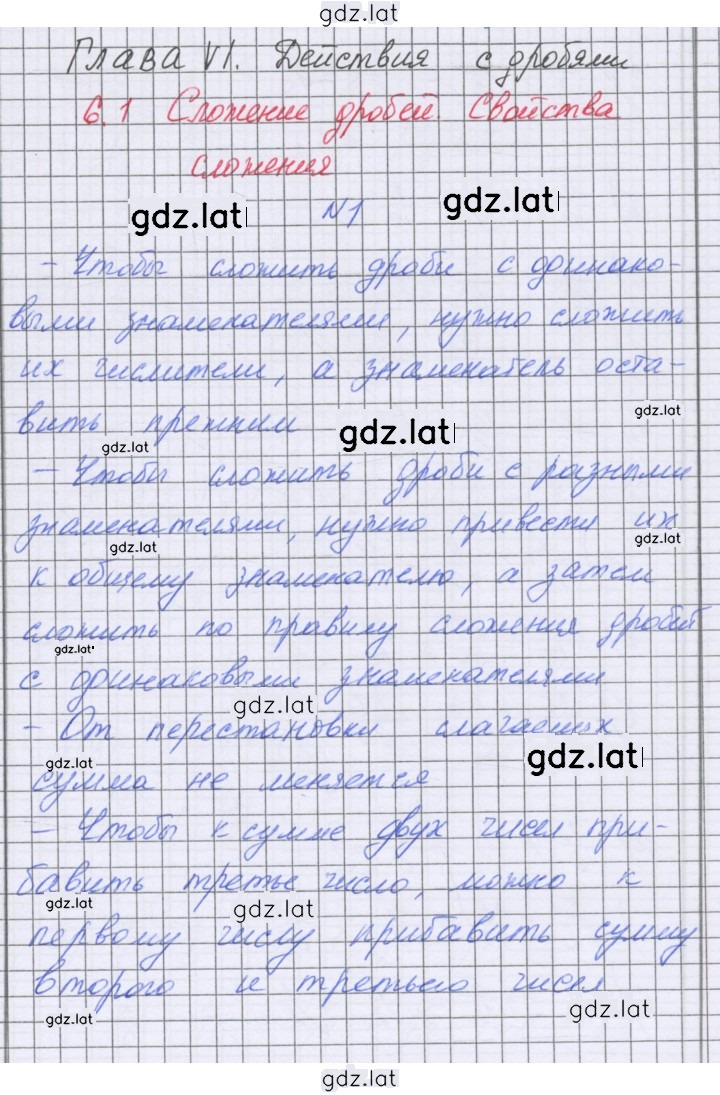 gdz.lat
Глава VI. Действия с дробями
6.1 Сложение дробей. Свойства
сложения
gdz.lat gdz.lat
N1
- Чтобы сложить дроби с одинако-
выми знаменателями, нужно сложить
их числители, а знаменатель оста-
gdz.lat
вить прежним
gdz.lat gdz.lat
- Чтобы сложить дроби с разными
знаменателями, нужно привести их
gdz.lat gdz.lat
к общему знаменателю, а затем
сложить по правилу сложения дробей
gdz.lat
с одинаковыми знаменателями
gdz.lat
- От перестановки слагаемых
gdz.lat gdz.lat
сумма не меняется
- Чтобы к сумме двух чисел при-
бавить третье число, можно к
gdz.lat gdz.lat
первому числу прибавить сумму
второго и третьего чисел
gdz.lat gdz.lat
gdz.lat